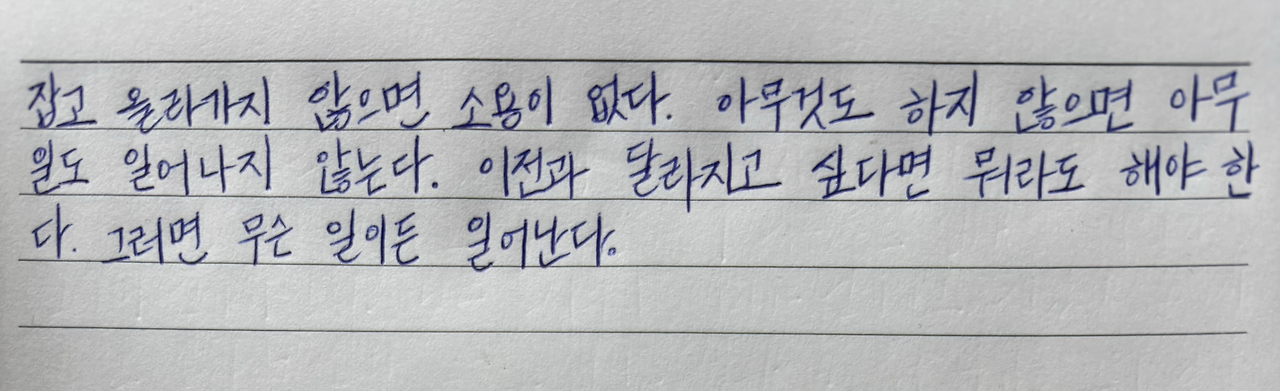 잡고 올라가지 않으면 소용이 없다. 아무것도 하지 않으면 아무
일도 일어나지 않는다. 이전과 달라지고 싶다면 뭐라도 해야 한
다. 그러면 무슨 일이든 일어난다.